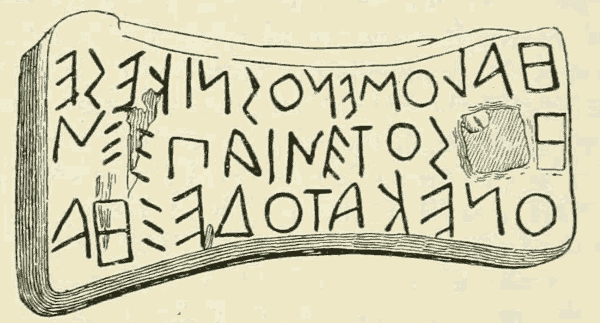 ΗΑΛΟΜΕΝΟΣΝΙΚΕΣΕ
Ν⋮ΕΠΑΙΝΕΤΟΣΗ
ΟΝΕΚΑΤΟΔΕ⋮ΗΑ